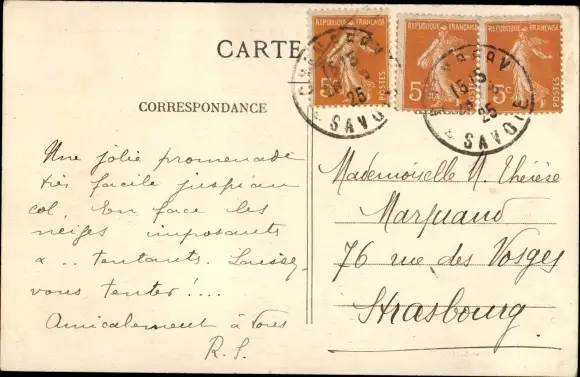 CARTE
RÉPUBLIQUE FRANÇAISE
5c
POSTES
RÉPUBLIQUE FRANÇAISE
5c
POSTES
RÉPUBLIQUE FRANÇAISE
5c
POSTES
CHAMBERY
15 15
25
SAVOIE
15 15
25
SAVOIE
CORRESPONDANCE
Une jolie promenade
très facile jusqu'au
col. En face les
neiges imposants
& .. tentants. Laissez
vous tenter !....
Amicalement à Vous
R. S.
Mademoiselle M. Thérèse
Marquand
76 rue des Vosges
Strasbourg